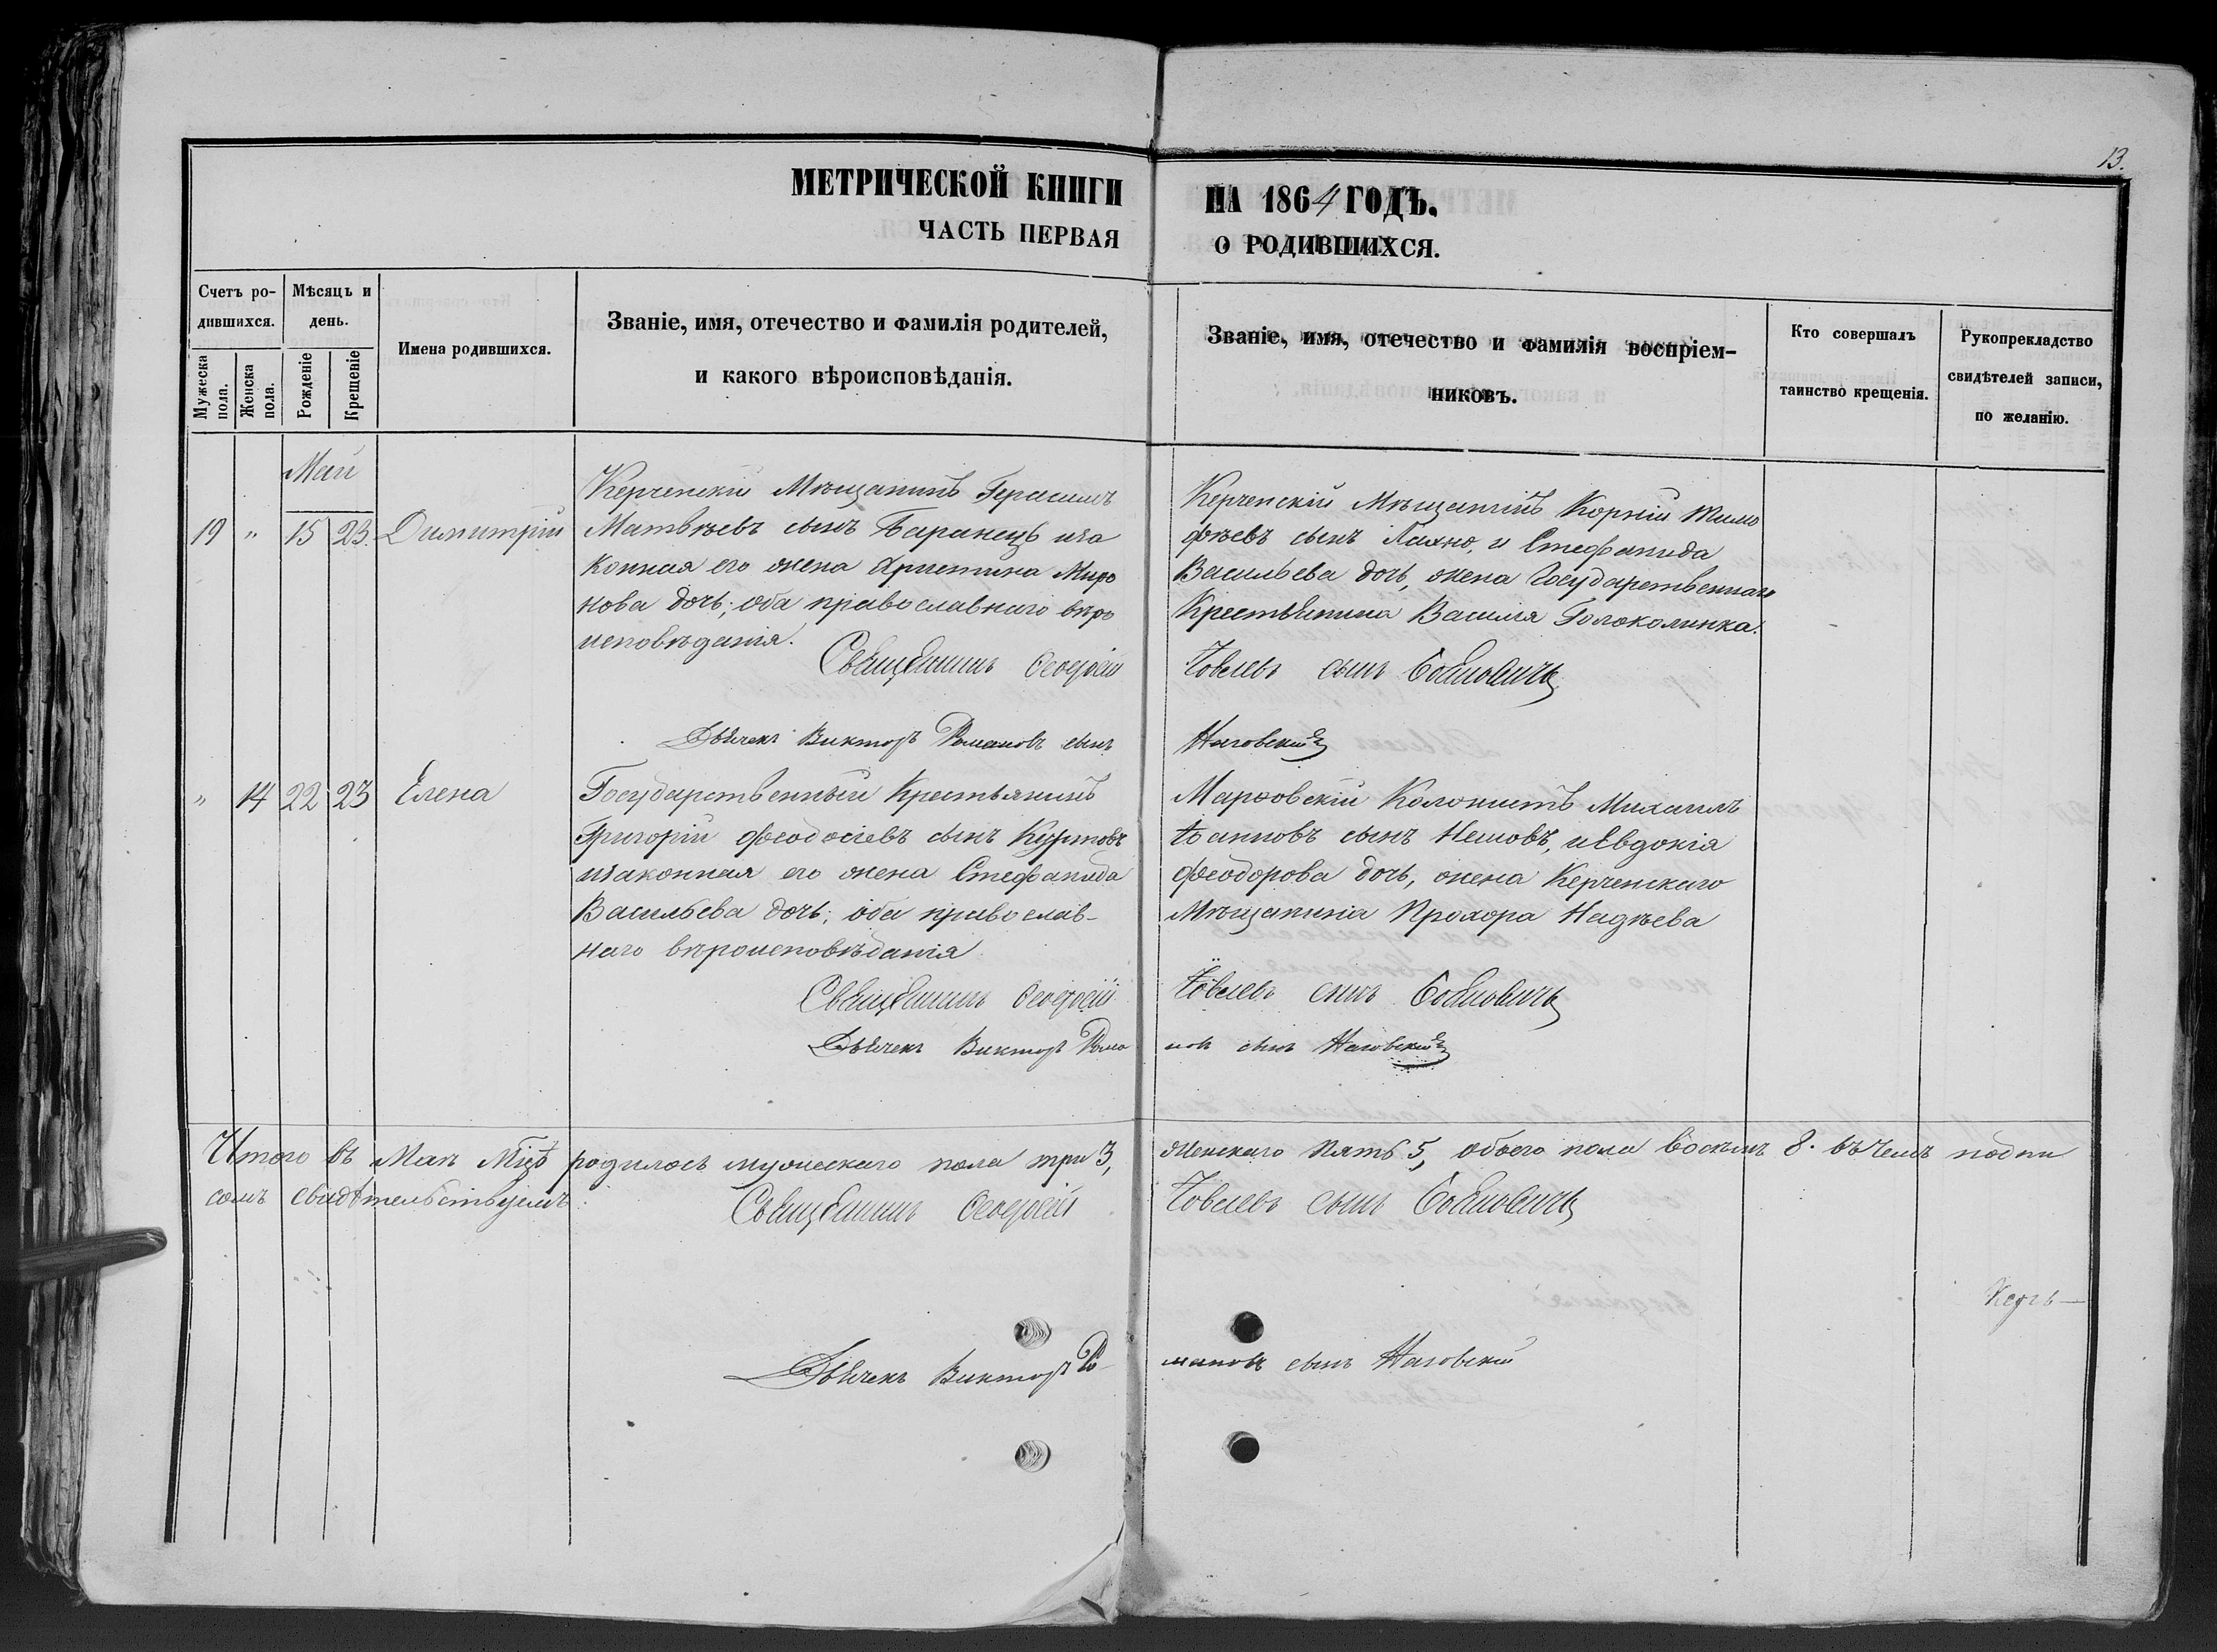 13.
МЕТРИЧЕСКОЙ КНИГИ НА 1864 ГОДЪ.
ЧАСТЬ ПЕРВАЯ О РОДИВШИХСЯ.
Счетъ ро-
дившихся.
Мужеска пола.
Женска пола.
Мѣсяцъ и
день.
Рожденіе
Крещеніе
Имена родившихся.
Званіе, имя, отечество и фамилія родителей,
и какого вѣроисповѣданія.
Званіе, имя, отечество и фамилія воспріем-
никовъ.
Кто совершалъ
таинство крещенія.
Рукопрекладство
свидѣтелей записи,
по желанію.
Май
19 " 15 23. Димитрій
Керченскій Мѣщанинъ Герасимъ
Матвѣевъ сынъ Баранецъ иза
конная его жена Христина Миро
нова дочь; оба православнаго вѣро
исповѣданія.
Керченскій Мѣщанинъ Корнiй Тимо
фѣевъ сынъ Пахно, и Стефанида
Васильева дочь, жена Государственнаго
Крестьянина Василія Голоколинка.
Священникъ Ѳеодосій Іовлевъ сынъ
Дьячекъ Викторъ Романовъ сынъ Наговскій
" 14 22 23 Елена
Государственный Крестьянинъ
Григорій Феодосіевъ сынъ Куртовъ
изаконная его жена Стефанида
Васильева дочь; оба православ-
наго вѣроисповѣданія
Марфовскій Колонистъ Михаилъ
Іоанновъ сынъ Нешовъ, иЕвдокія
Феодорова дочь, жена Керченскаго
Мѣщанина Прохора Надѣева
Священникъ Ѳеодосій Іовлевъ сынъ
Дьячекъ Викторъ Рома новъ сынъ Наговскій
Итого въ Маѣ Мцѣ родилось мужескаго пола три 3, Женскаго Пять 5, обоего пола восемь 8. въ чемъ подпи
сомъ свидѣтельствуемъ: Священникъ Ѳеодосій Іовлевъ сынъ
Дьячекъ Викторъ Ро- мановъ сынъ Наговскій